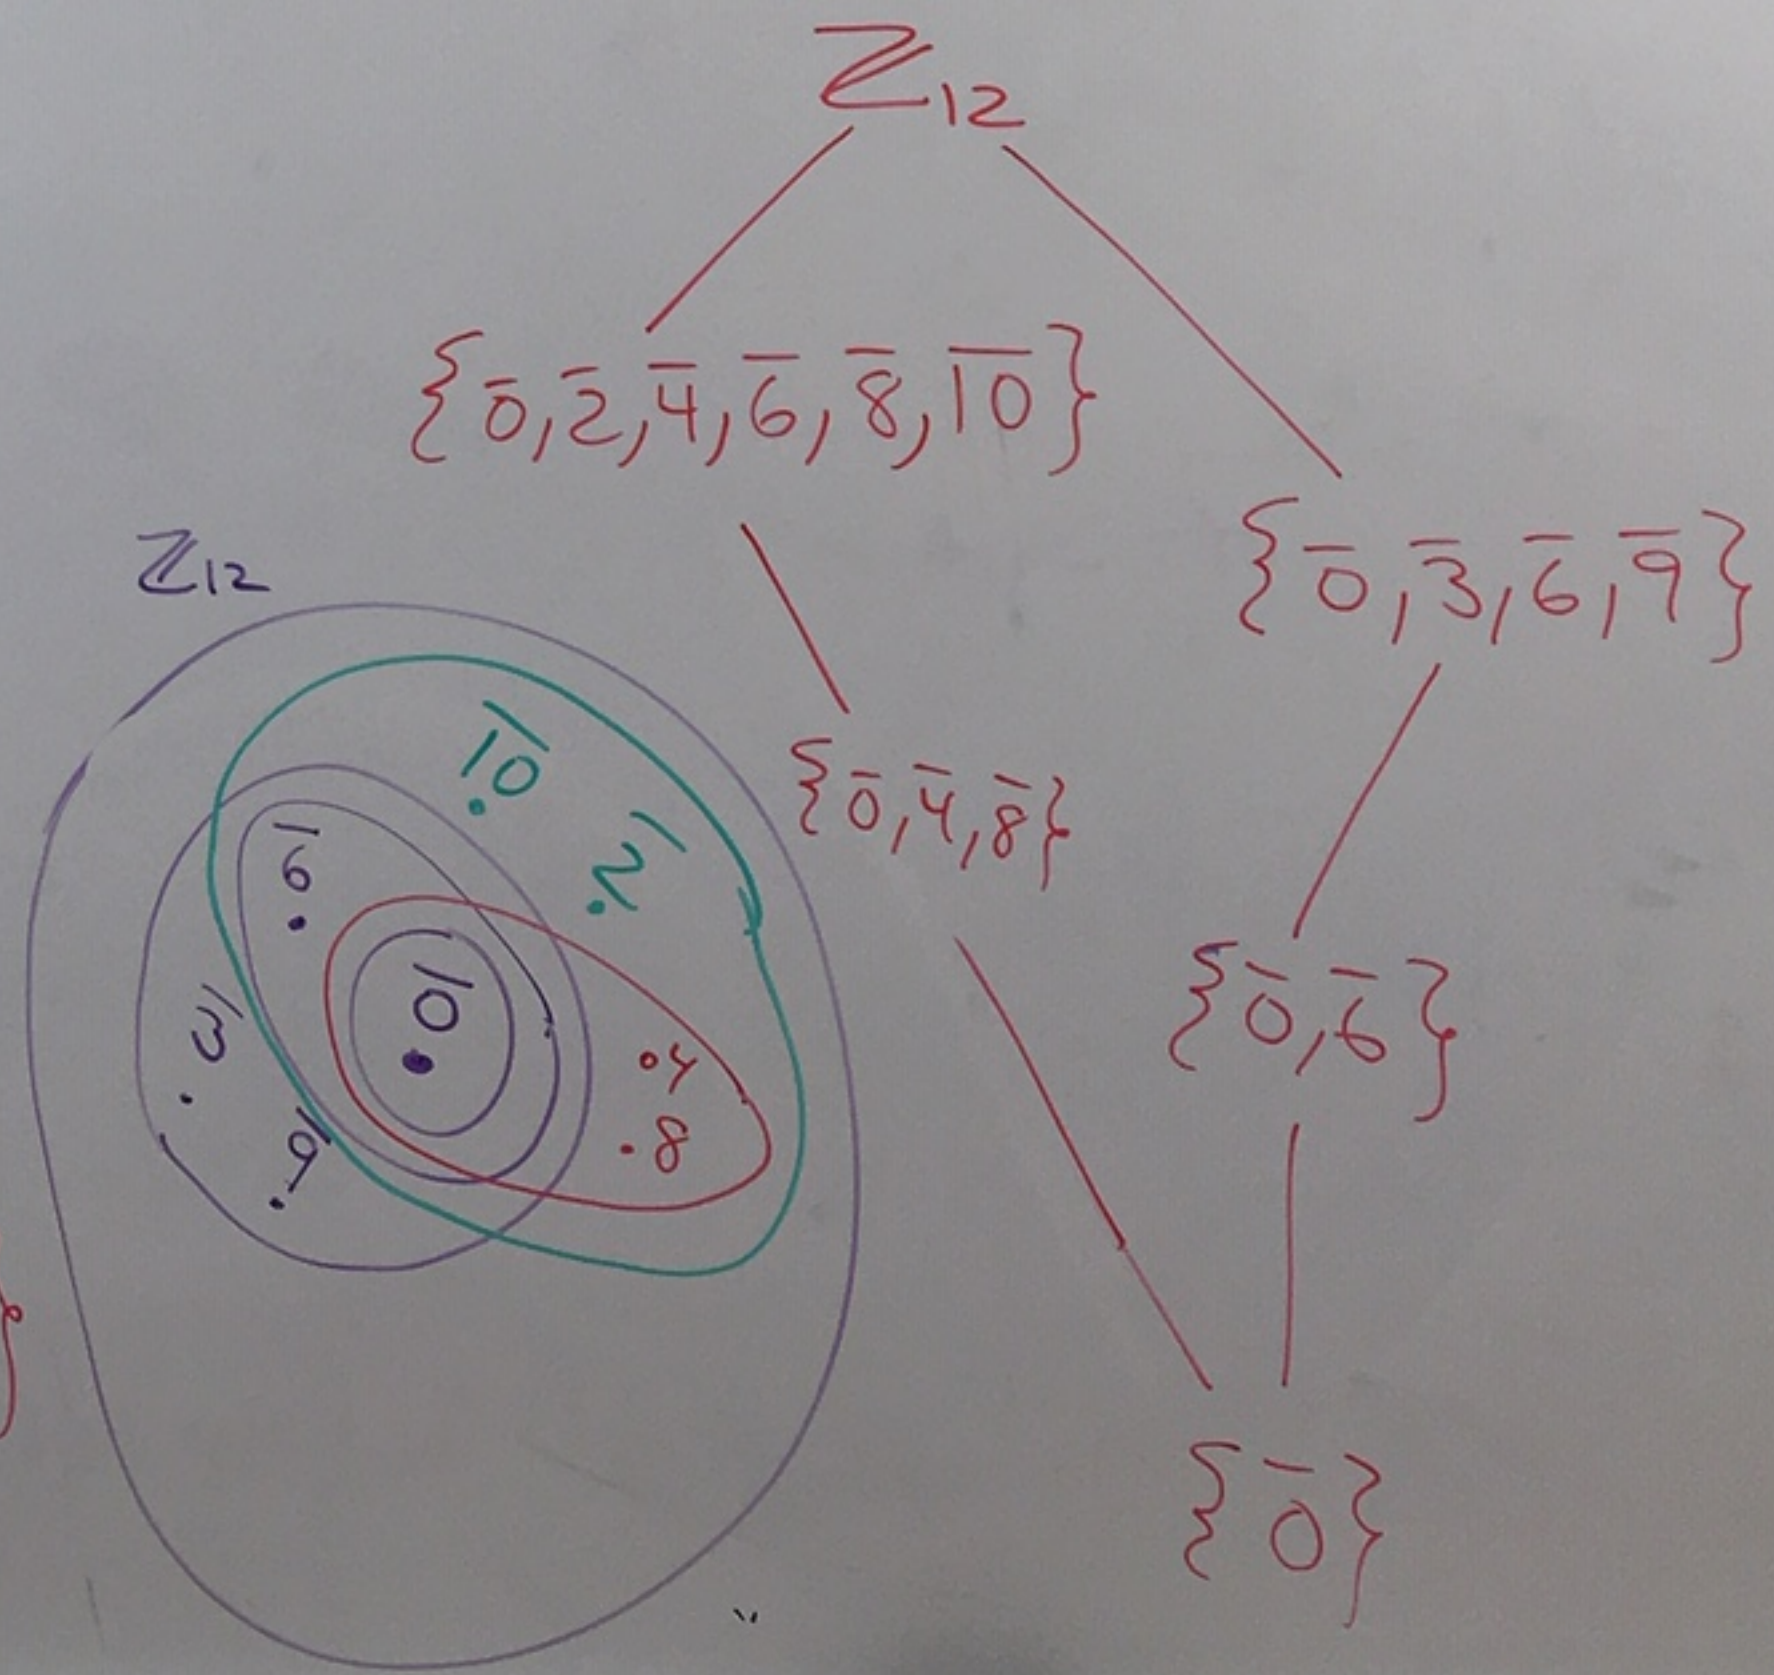 ℤ₁₂
{0̅, 2̅, 4̅, 6̅, 8̅, 1̅0̅}
{0̅, 3̅, 6̅, 9̅}
{0̅, 4̅, 8̅}
{0̅, 6̅}
{0̅}
ℤ₁₂
1̅0̅
2̅
6̅
0̅
3̅
4
8
9̅
}